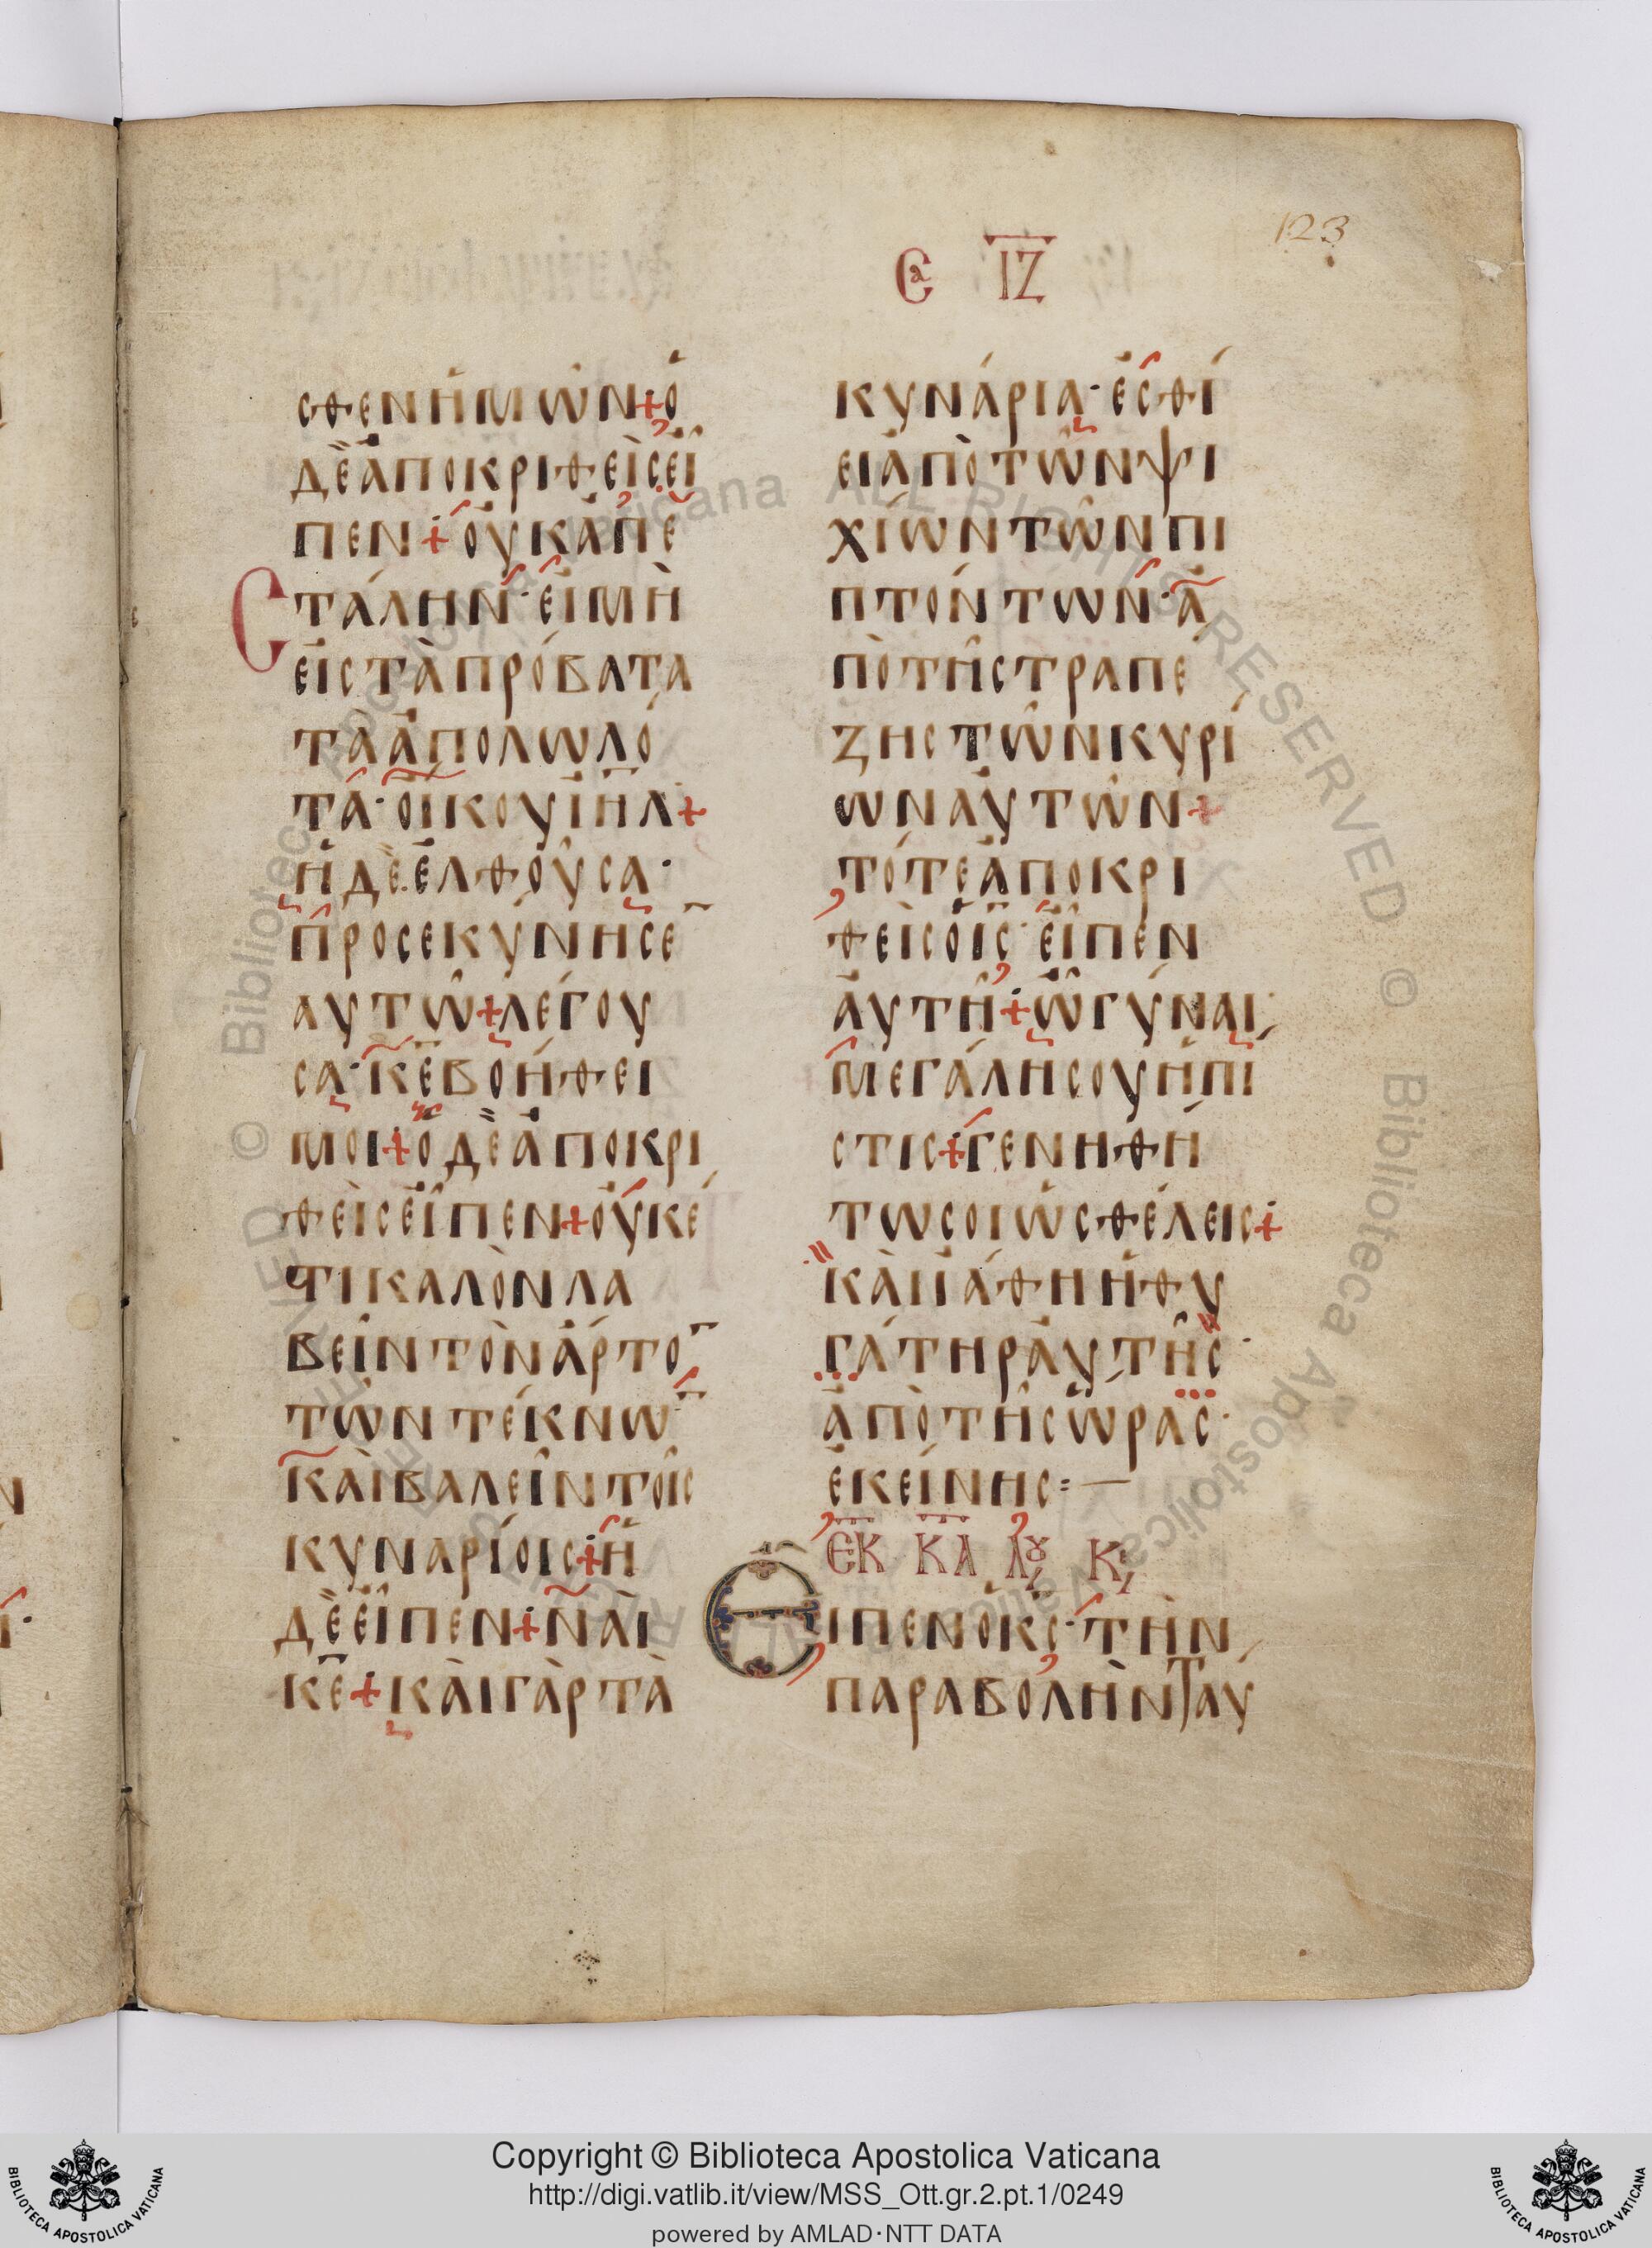 123
Cα ΙΖ
σθεν ἡμῶν + ὁ
δὲ ἀποκριθεὶς εἶ
πεν + οὐκ ἀπε
στάλην· εἰ μὴ
εἰς τὰ πρόβατα
τὰ ἀπολωλό
τα· οἴκου ιηλ +
ἡ δὲ ἐλθοῦσα·
προσεκύνησε̄
αυτῶ + λέγου
σα· κε βοήθει
μοι + ὁ δὲ ἀποκρι
θεὶς εἶπεν + οὐκ ἔ
στι καλὸν λα
βεῖν τὸν ἄρτο̄
τῶν τέκνω̄·
καὶ βαλεῖν τοῖς
κυναρίοις + ἡ
δὲ εἶπεν + ναὶ
κε + καὶ γὰρ τὰ
κυνάρια· ἐσθί
ει ἀπὸ τῶν ψι
χίων τῶν πι
πτόντων· ἀ
πὸ τῆς τραπέ
ζης τῶν κυρί
ων αὐτῶν +
τότε ἀποκρι
θεὶς ὁ ις· εἶπεν
αὐτῆ + ὦ γύναι,
μεγάλη σου ἡ πί
στις + γενηθή
τω σοι ὡς θέλεις +
καὶ ἰάθη ἡ θυ
γάτηρ αὐτῆς·
ἀπὸ τῆς ὥρας·
ἐκείνης :—
ἐκ κα λου κ,
Εἶπεν ὁ κς· τὴν
παραβολὴν ταύ
Copyright © Biblioteca Apostolica Vaticana
http://digi.vatlib.it/view/MSS_Ott.gr.2.pt.1/0249
powered by AMLAD·NTT DATA
BIBLIOTECA APOSTOLICA VATICANA
BIBLIOTECA APOSTOLICA VATICANA